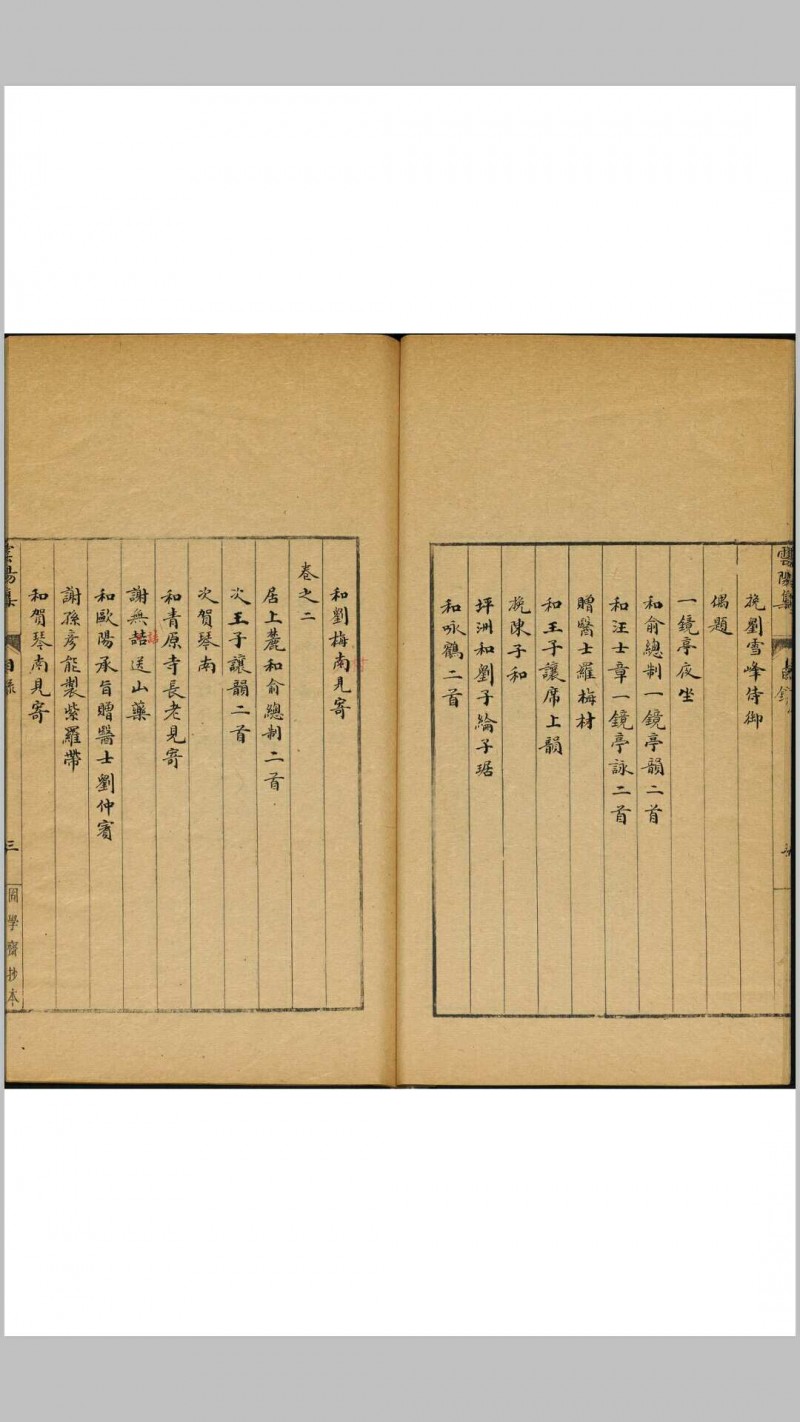 雲陽集
挽劉雪峰侍御
偶題
一鏡亭夜坐
和俞總制一鏡亭韻二首
和汪士章一鏡亭詠二首
贈醫士羅梅材
和王子讓席上韻
挽陳子和
坪洲和劉子綸子琚
和咏鶴二首
和劉梅南見寄
卷之二
居上麓和俞總制二首
次王子讓韻二首
次賀琴南
和青原寺長老見寄
謝無喆送山藥
和歐陽承旨贈醫士劉仲賓
謝孫彥能製紫羅帶
和賀琴南見寄
目錄
三
學齋抄本